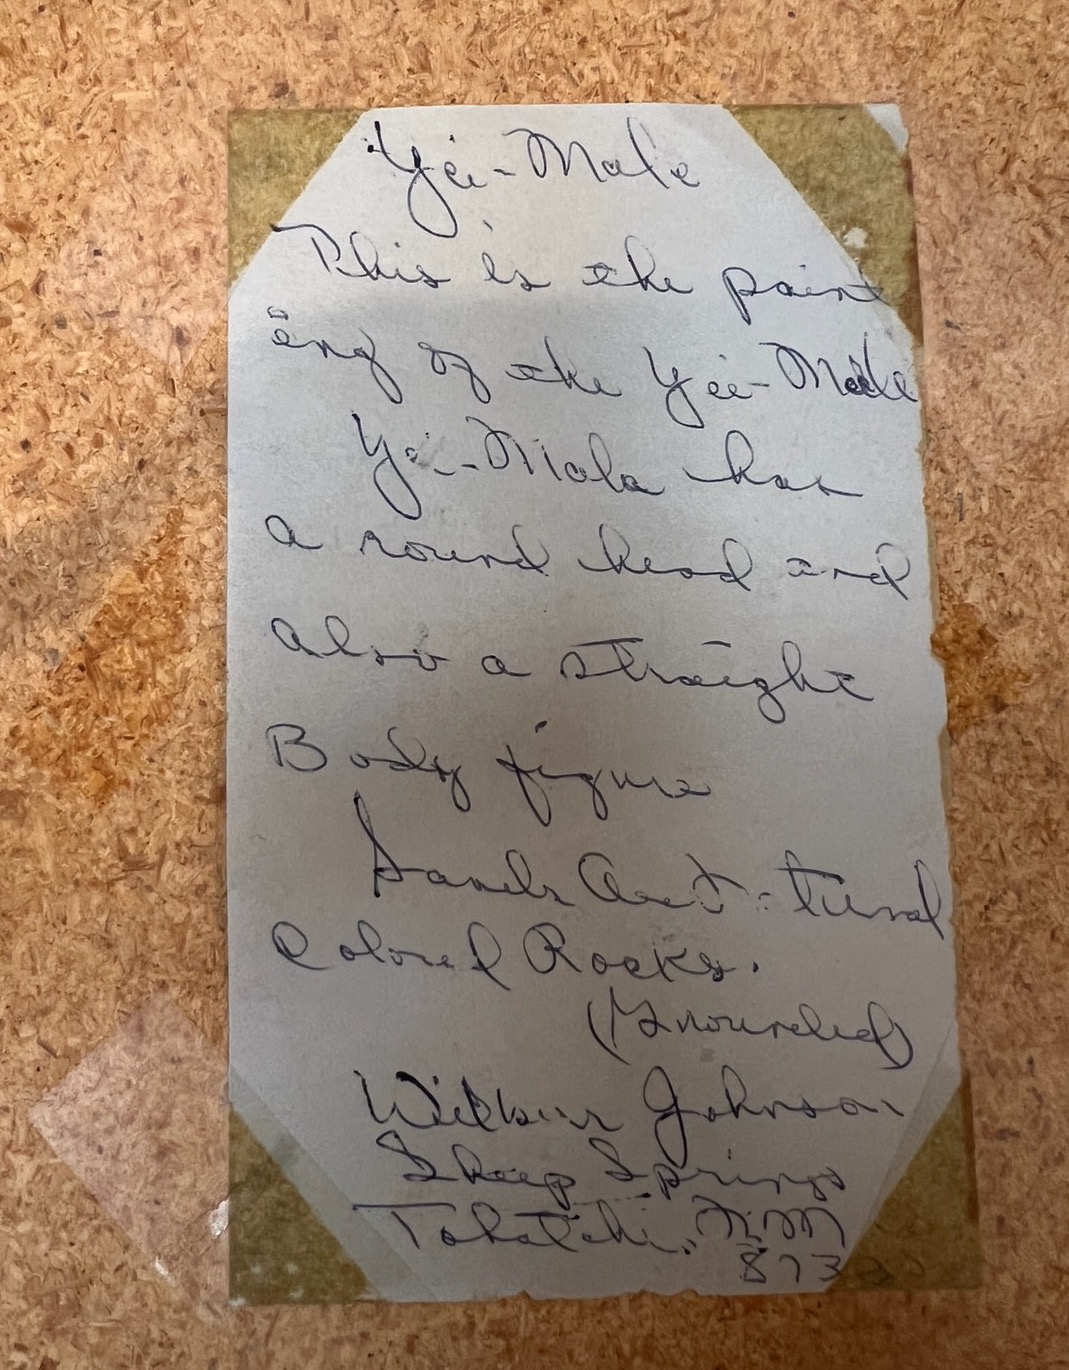 Yei-Male
This is the paint
ing of the Yei-Male
Yei-Male has
a round head and
also a straight
Body figure
Sands Art:
Colored Rocks.
(Grounded)
Wilbur Johnson
Sheep Springs
Tohatchi, N.M
873